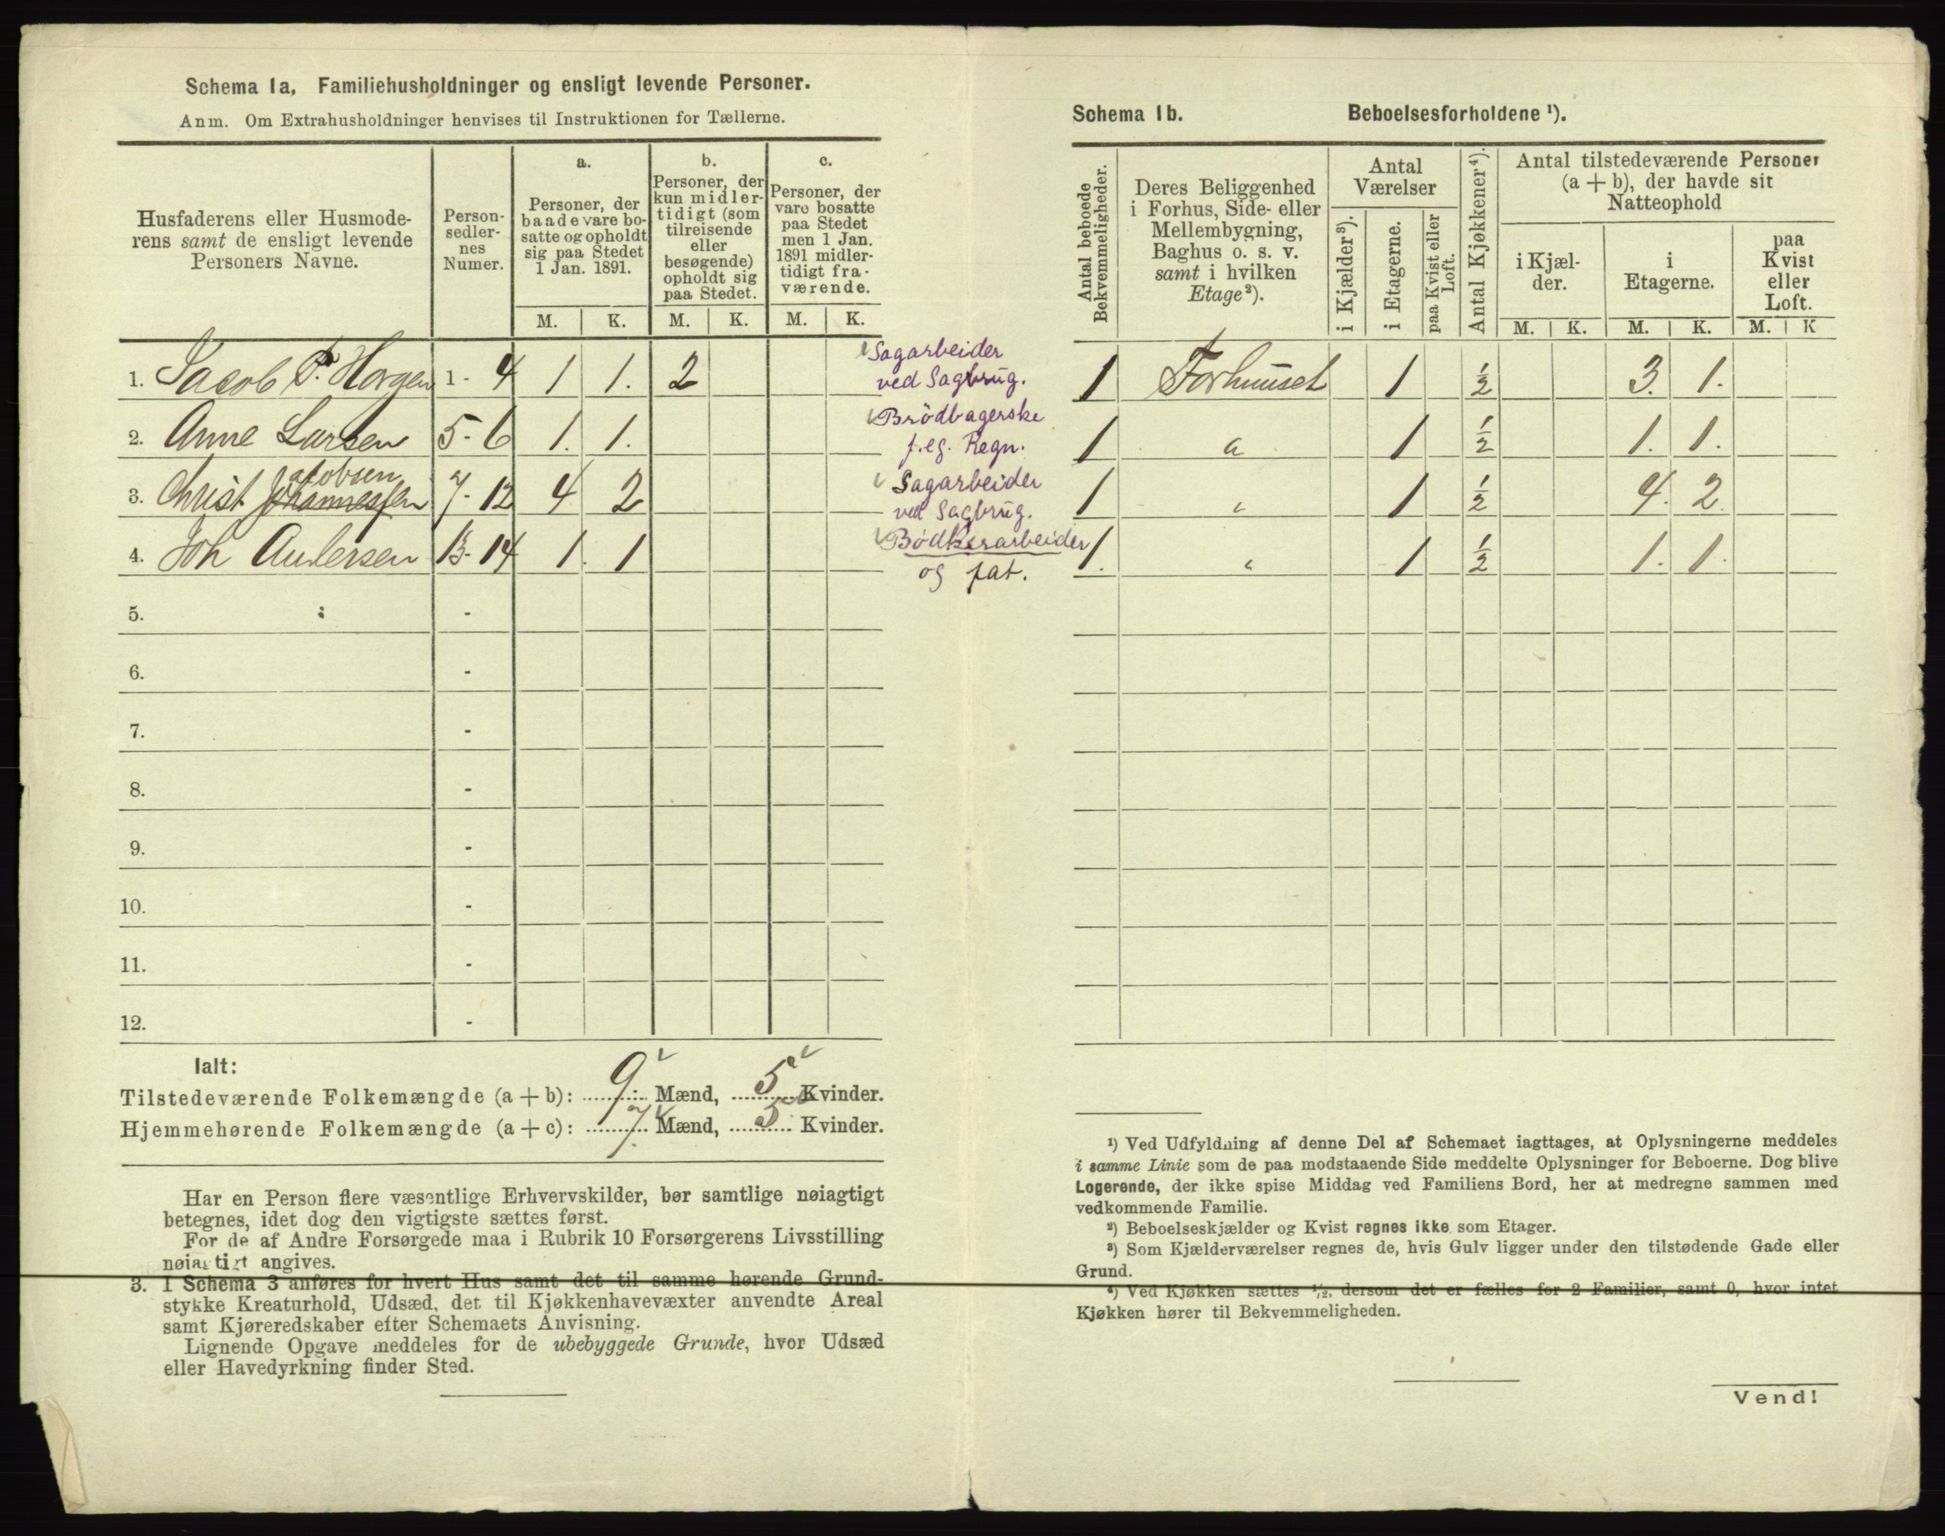 Schema 1a, Familiehusholdninger og ensligt levende Personer.
Anm. Om Extrahusholdninger henvises til Instruktionen for Tællerne.
Husfaderens eller Husmode-
rens samt de ensligt levende
Personers Navne.
Person-
sedler-
nes
Numer.
a.
Personer, der
baade vare bo-
satte og opholdt
sig paa Stedet
1 Jan. 1891.
b.
Personer, der
kun midler-
tidigt (som
tilreisende
eller
besøgende)
opholdt sig
paa Stedet.
c.
Personer, der
vare bosatte
paa Stedet
men 1 Jan.
1891 midler-
tidigt fra-
værende.
M. K. M. K. M. K.
1. Jacob P. Horgen 1 - 4 1 1. 2 Sagarbeider
ved Sagbrug.
2. Anne Larsen 5 - 6 1. 1. Brödbagerske
f. eg. Regn.
3. Christ Johannessen Jacobsen 7 - 12 4 2 Sagarbeider
ved Sagbrug.
4. Joh Andersen 13 - 14 1. 1 Bødkerarbeider
og fat.
5. -
6. -
7. -
8. -
9. -
10. -
11. -
12. -
Ialt:
Tilstedeværende Folkemængde (a + b): 9 Mænd, 5 Kvinder.
Hjemmehørende Folkemængde (a + c): 7 Mænd, 5 Kvinder.
Har en Person flere væsentlige Erhvervskilder, bør samtlige nøiagtigt
betegnes, idet dog den vigtigste sættes først.
For de af Andre Forsørgede maa i Rubrik 10 Forsørgerens Livsstilling
nøiagtigt angives.
3. I Schema 3 anføres for hvert Hus samt det til samme hørende Grund-
stykke Kreaturhold, Udsæd, det til Kjøkkenhavevæxter anvendte Areal
samt Kjøreredskaber efter Schemaets Anvisning.
Lignende Opgave meddeles for de ubebyggede Grunde, hvor Udsæd
eller Havedyrkning finder Sted.
Schema 1b. Beboelsesforholdene ¹).
Antal beboede
Bekvemmeligheder.
Deres Beliggenhed
i Forhus, Side- eller
Mellembygning,
Baghus o. s. v.
samt i hvilken
Etage²).
Antal
Værelser
i Kjælder³).
i Etagerne.
paa Kvist eller
Loft.
Antal Kjøkkener⁴).
Antal tilstedeværende Personer
(a + b), der havde sit
Natteophold
i Kjæl-
der.
i
Etagerne.
paa
Kvist
eller
Loft.
M. K. M. K. M. K
1 Forhuset 1 ½ 3. 1.
1 " 1 ½ 1. 1.
1 " 1 ½ 4. 2.
1. " 1 ½ 1. 1.
¹) Ved Udfyldning af denne Del af Schemaet iagttages, at Oplysningerne meddeles
i samme Linie som de paa modstaaende Side meddelte Oplysninger for Beboerne. Dog blive
Logerende, der ikke spise Middag ved Familiens Bord, her at medregne sammen med
vedkommende Familie.
²) Beboelseskjælder og Kvist regnes ikke som Etager.
³) Som Kjælderværelser regnes de, hvis Gulv ligger under den tilstødende Gade eller
Grund.
⁴) Ved Kjøkken sættes ½, dersom det er fælles for 2 Familier, samt 0, hvor intet
Kjøkken hører til Bekvemmeligheden.
Vend!